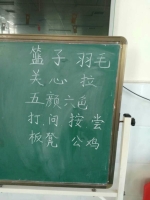 篮子 羽毛
关心 拉
五颜六色
打 间 按 尝
板凳 公鸡